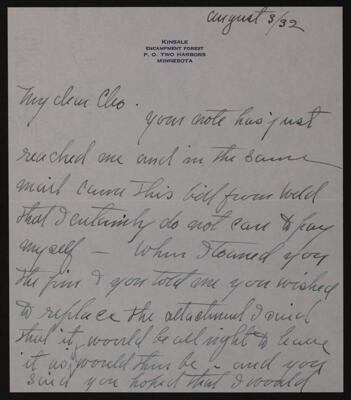 August 3/32
KINSALE
ENCAMPMENT FOREST
P. O. TWO HARBORS
MINNESOTA
My dear Cleo.
your note has just
reached me and in the same
mail came this bill from Weld
that I certainly do not care to pay
myself – When I loaned you
the pin & you told me you wished
to replace the attachment I said
that it would be all right to leave
it as would thus be – and you
said you hoped that I would